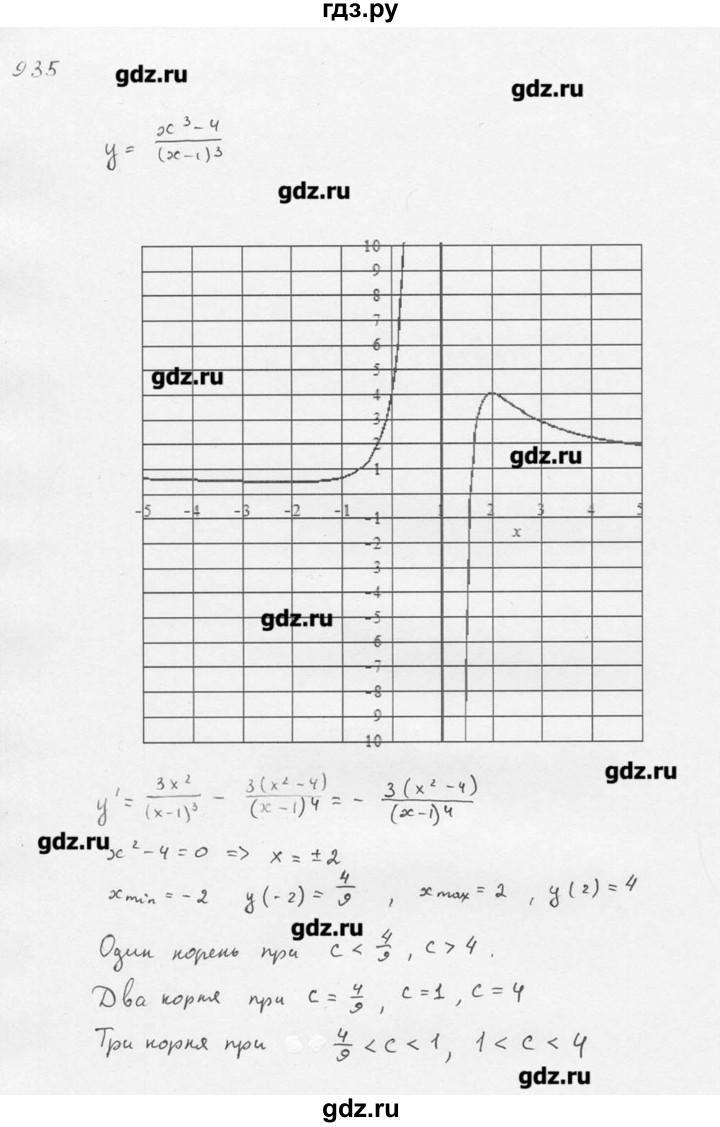 гдз.ру
935
gdz.ru
gdz.ru
y = (x³-4)/(x-1)³
gdz.ru
10
9
8
7
6
5
4
3
2
1
gdz.ru
gdz.ru
-5 -4 -3 -2 -1 1 2 3 4 5
x
-1
-2
3
-4
-5
6
-7
-8
9
10
gdz.ru
gdz.ru
y' = 3x²/(x-1)³ - 3(x²-4)/(x-1)⁴ = - 3(x²-4)/(x-1)⁴
gdz.ru
x²-4=0 => x = ±2
x min = -2 y(-2) = 4/9 , x max = 2 , y(2) = 4
gdz.ru
Один корень при c < 4/9 , c > 4 .
Два корня при c = 4/9 , c = 1 , c = 4
Три корня при 4/9 < c < 1 , 1 < c < 4
gdz.ru
gdz.ru